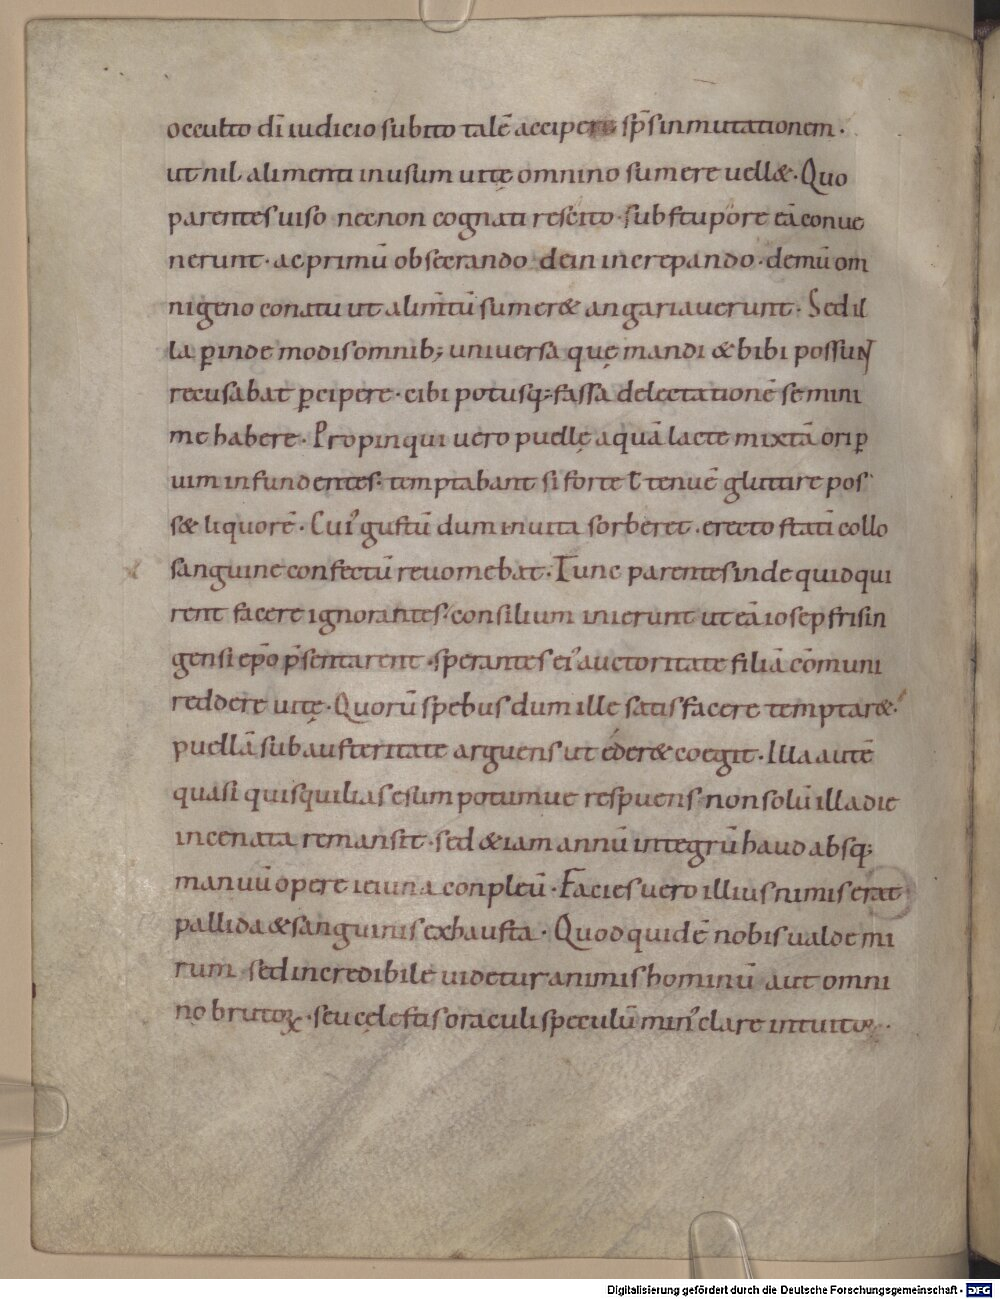 occulto dī iudicio subito talē acciperet sp̄s inmutationem·
ut nil alimenti in usum uitę omnino sumere uell&· Quo
parentes uiso necnon cognati rescito· sub stupore eā conue
nerunt· ac primū obsecrando dein increpando· demū om
nigeno conatu ut alim̄tū sumer& angariauerunt· Sed il
la ꝑinde modis omnib; uniuersa quę mandi & bibi possuɴᴛ
recusabat ꝑcipere· cibi potusq; fassa delectationē se mini
me habere· Propinqui uero puellę aquā lacte mixtā ori ꝑ
uim infundentes· temptabant si forte ƚ tenuē gluttire pos
s& liquorē· Cui᾿ gustū dum inuita sorberet· erecto statī collo
sanguine confectū reuomebat· Tunc parentes inde quid qui
rent facere ignorantes· consilium inierunt ut eā iosep frisin
gensi ep̄o p̄sentarent· sperantes ei᾿ auctoritate filiā cōmuni
reddere uitę· Quorū spebus dum ille satisfacere temptar&·
puellā sub austeritate arguens ut éder& coegit· Illa autē
quasi quisquilias esum potumue respuens· non solū illa die
incenata remansit· sed &iam annū integrū haud absq;
manuū opere ieiuna conpleū· Facies uero illius nimis erat
pallida & sanguinis exhausta· Quod quidē nobis ualde mi
rum sed incredibile uidetur animis hominū aut omni
no brutoꝝ· seu cęlestis oraculi speculū min᾿ clare intuitoꝝ·
Digitalisierung gefördert durch die Deutsche Forschungsgemeinschaft - DFG